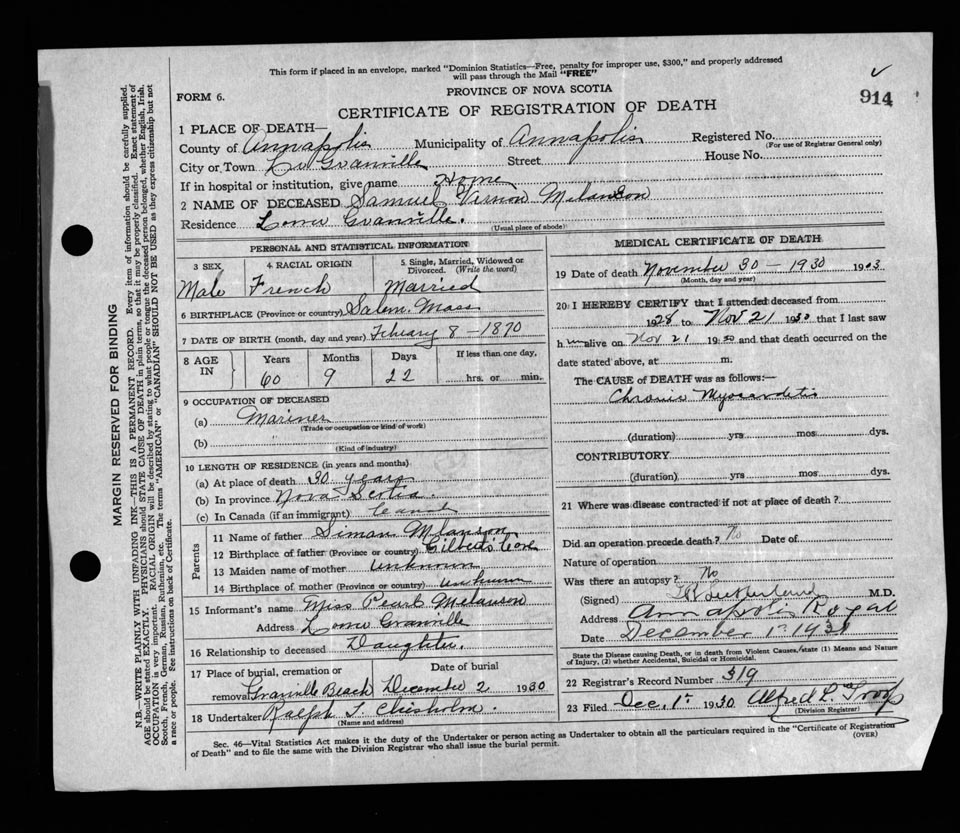 This form if placed in an envelope, marked "Dominion Statistics—Free, penalty for improper use, $300," and properly addressed
will pass through the Mail "FREE"
FORM 6.
PROVINCE OF NOVA SCOTIA
914
CERTIFICATE OF REGISTRATION OF DEATH
1 PLACE OF DEATH—
County of Annapolis Municipality of Annapolis Registered No.
(For use of Registrar General only)
City or Town Lr Granville Street House No.
If in hospital or institution, give name Home
2 NAME OF DECEASED Samuel Vernon Melanson
Residence Lower Granville.
(Usual place of abode)
PERSONAL AND STATISTICAL INFORMATION
3 SEX 4 RACIAL ORIGIN 5. Single, Married, Widowed or Divorced. (Write the word)
Male French Married
6 BIRTHPLACE (Province or country) Salem. Mass
7 DATE OF BIRTH (month, day and year) February 8 - 1870
8 AGE IN Years Months Days If less than one day,
60 9 22 hrs. or min.
9 OCCUPATION OF DECEASED
(a) Mariner
(Trade or occupation or kind of work)
(b)
(Kind of industry)
10 LENGTH OF RESIDENCE (in years and months)
(a) At place of death 30 years
(b) In province Nova Scotia.
(c) In Canada (if an immigrant)
Parents
11 Name of father Simon Melanson
12 Birthplace of father (Province or country) Gilberts Cove
13 Maiden name of mother Unknown
14 Birthplace of mother (Province or country) Unknown
15 Informant's name Miss Pearl Melanson
Address Lower Granville
16 Relationship to deceased Daughter.
17 Place of burial, cremation or removal Granville Beach Date of burial December 2 1930
18 Undertaker Ralph T. Chisholm.
(Name and address)
MEDICAL CERTIFICATE OF DEATH
19 Date of death November 30 - 1930 19
(Month, day and year)
20 I HEREBY CERTIFY that I attended deceased from
1928 to Nov 21 1930 that I last saw
h im alive on Nov 21 1930 and that death occurred on the
date stated above, at m.
The CAUSE of DEATH was as follows:—
Chronic Myocarditis
(duration) yrs mos dys.
CONTRIBUTORY
(duration) yrs. mos. dys.
21 Where was disease contracted if not at place of death ?
Did an operation precede death ? No Date of
Nature of operation
Was there an autopsy ? No
(Signed) M.D.
Address Annapolis Royal
Date December 1st
State the Disease causing Death, or in death from Violent Causes, state (1) Means and Nature
of Injury, (2) whether Accidental, Suicidal or Homicidal.
22 Registrar's Record Number 319
23 Filed Dec. 1st 1930 Alfred L. Troop
(Division Registrar)
Sec. 46—Vital Statistics Act makes it the duty of the Undertaker or person acting as Undertaker to obtain all the particulars required in the "Certificate of Registration
of Death" and to file the same with the Division Registrar who shall issue the burial permit.
(OVER)
MARGIN RESERVED FOR BINDING
N.B.—WRITE PLAINLY WITH UNFADING INK—THIS IS A PERMANENT RECORD. Every item of information should be carefully supplied.
AGE should be stated EXACTLY. PHYSICIANS should STATE CAUSE OF DEATH in plain terms, so that it may be properly classified. Exact statement of
OCCUPATION is very important. RACIAL ORIGIN will be described by stating to what people or tongue the deceased person belonged, whether English, Irish,
Scotch, French, German, Russian, Ruthenian, etc. The terms "AMERICAN" or "CANADIAN" SHOULD NOT BE USED as they express citizenship but not
a race or people. See instructions on back of Certificate.